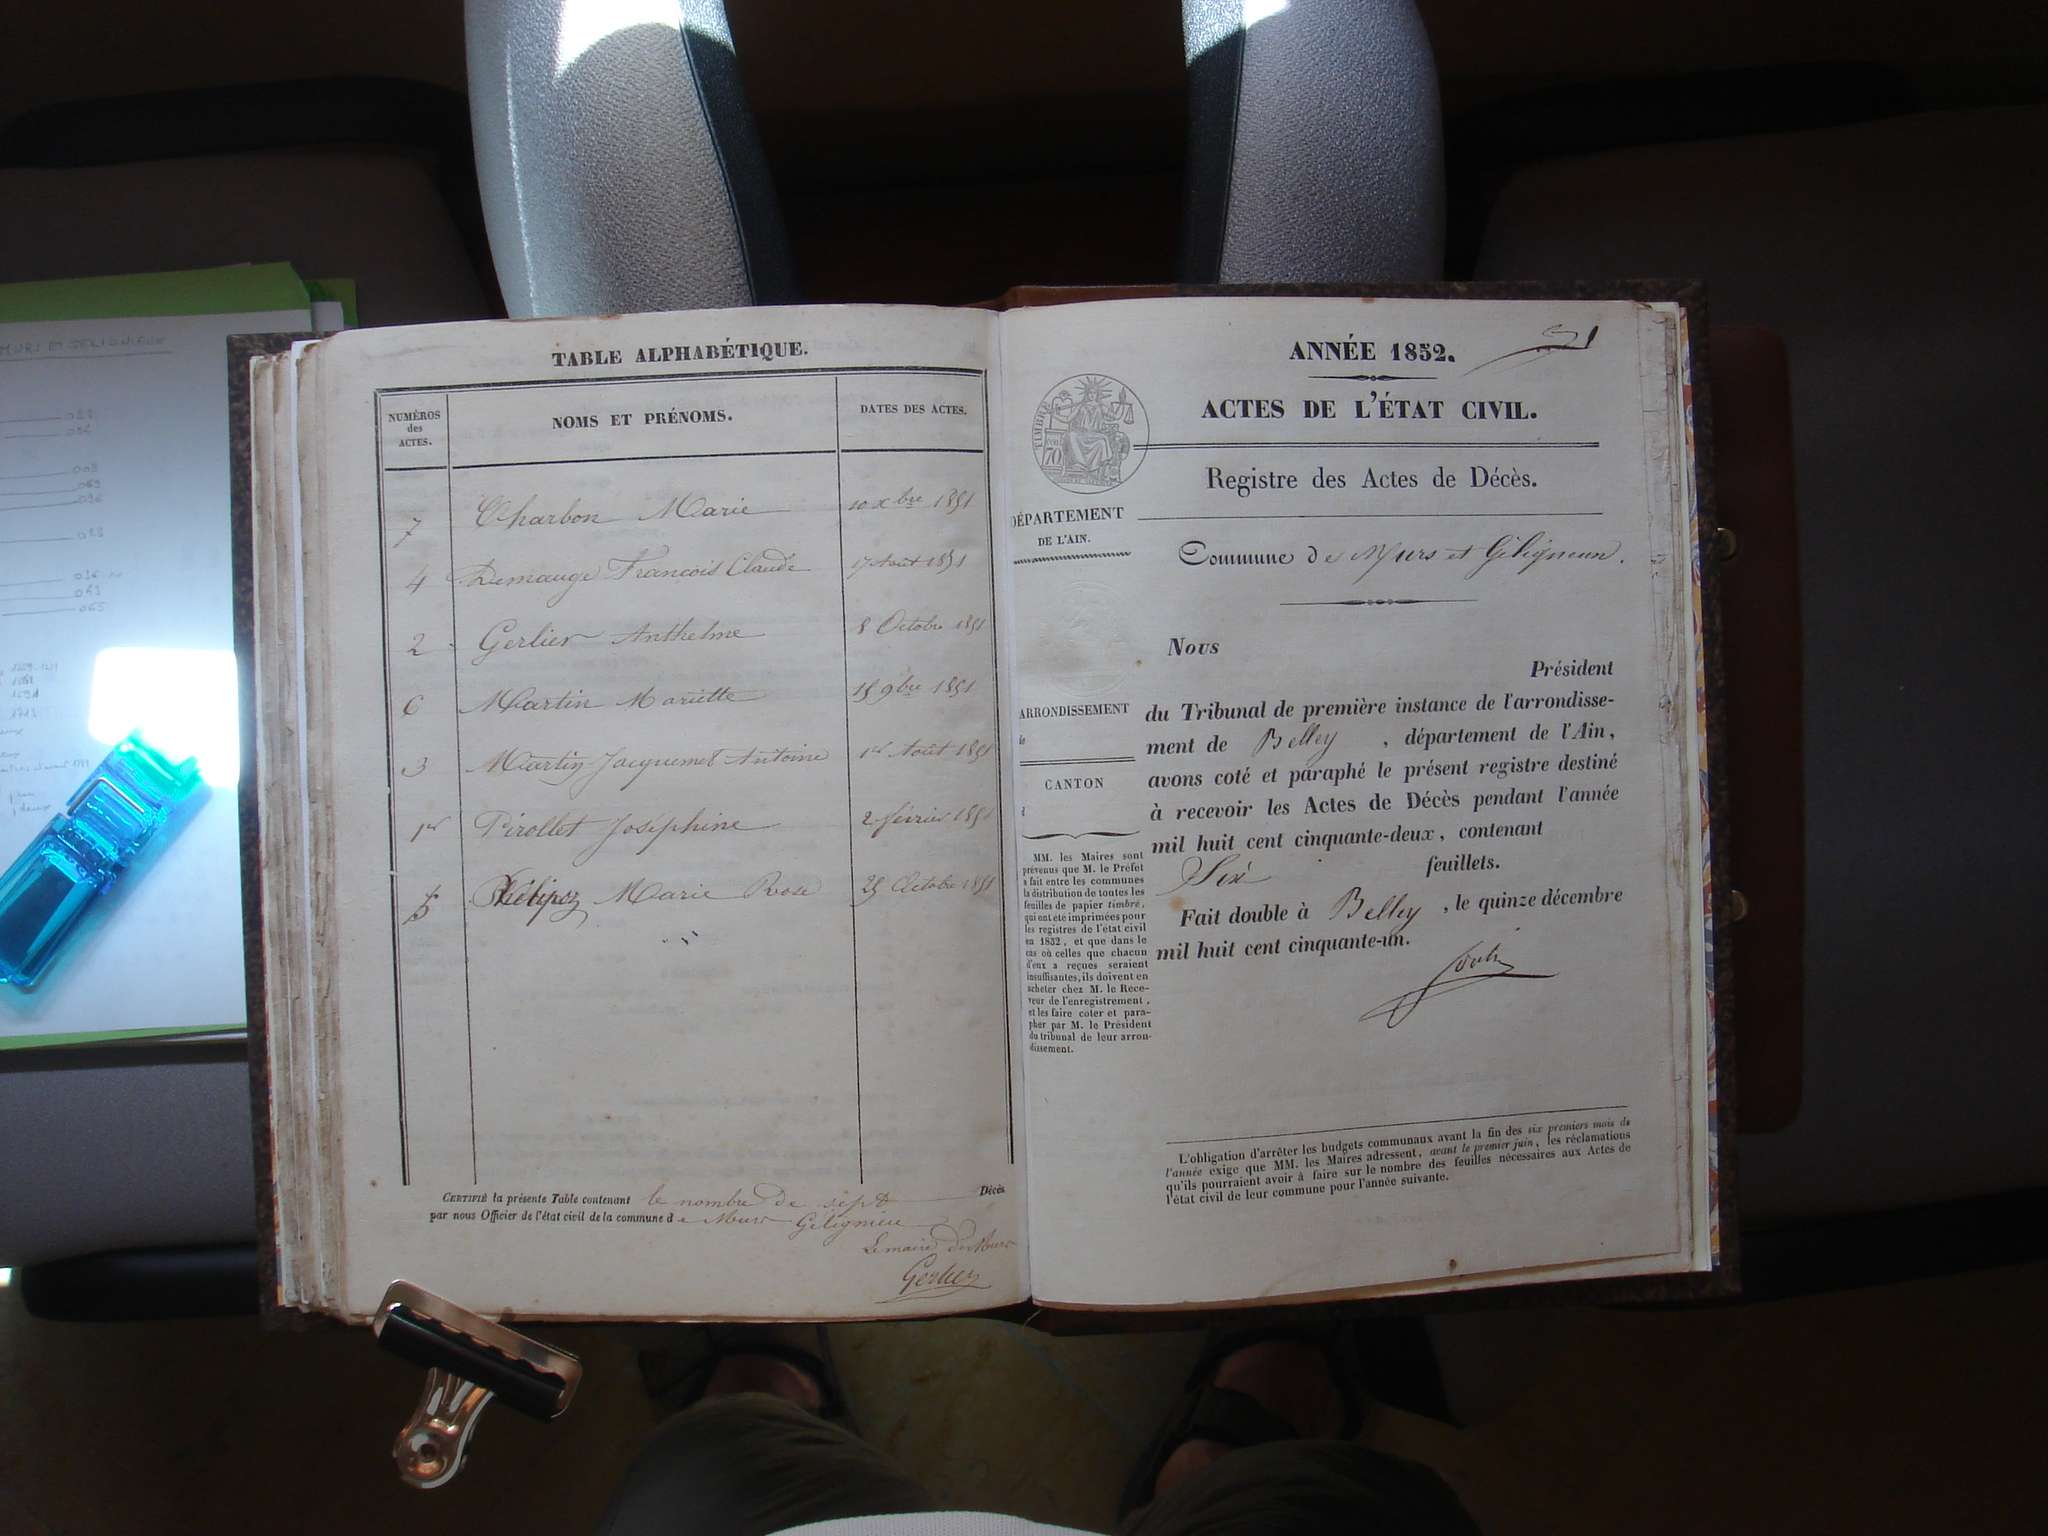 TABLE ALPHABÉTIQUE.
NUMÉROS des ACTES.
NOMS ET PRÉNOMS.
DATES DES ACTES.
7 Charbon Marie 10 Xbre 1851
4 Demauge Francois Claude 17 Août 1851
2 Gerlier Anthelme 8 Octobre 1851
6 Martin Mariette 15 9bre 1851
3 Martin Jacquemet Antoine 1er Août 1851
1er Pirollet Joséphine 2 février 1851
5 Marie Rose 25 Octobre 1851
CERTIFIÉ la présente Table contenant le nombre de sept Décès
par nous Officier de l'état civil de la commune de Murs Gélignieu
Le maire de Murs
Gerlier
ANNÉE 1852.
ACTES DE L'ÉTAT CIVIL.
Registre des Actes de Décès.
TIMBRE
70
DÉPARTEMENT
DE L'AIN.
Commune de Murs et Géligneux.
ARRONDISSEMENT
de
CANTON
d
MM. les Maires sont
prévenus que M. le Préfet
a fait entre les communes
la distribution de toutes les
feuilles de papier timbré,
qui ont été imprimées pour
les registres de l'état civil
en 1852, et que dans le
cas où celles que chacun
d'eux a reçues seraient
insuffisantes, ils doivent en
acheter chez M. le Rece-
veur de l'enregistrement,
et les faire coter et para-
pher par M. le Président
du tribunal de leur arron-
dissement.
Nous
Président
du Tribunal de première instance de l'arrondisse-
ment de Belley, département de l'Ain,
avons coté et paraphé le présent registre destiné
à recevoir les Actes de Décès pendant l'année
mil huit cent cinquante-deux, contenant
Six feuillets.
Fait double à Belley, le quinze décembre
mil huit cent cinquante-un.
L'obligation d'arrêter les budgets communaux avant la fin des six premiers mois de
l'année exige que MM. les Maires adressent, avant le premier juin, les réclamations
qu'ils pourraient avoir à faire sur le nombre des feuilles nécessaires aux Actes de
l'état civil de leur commune pour l'année suivante.